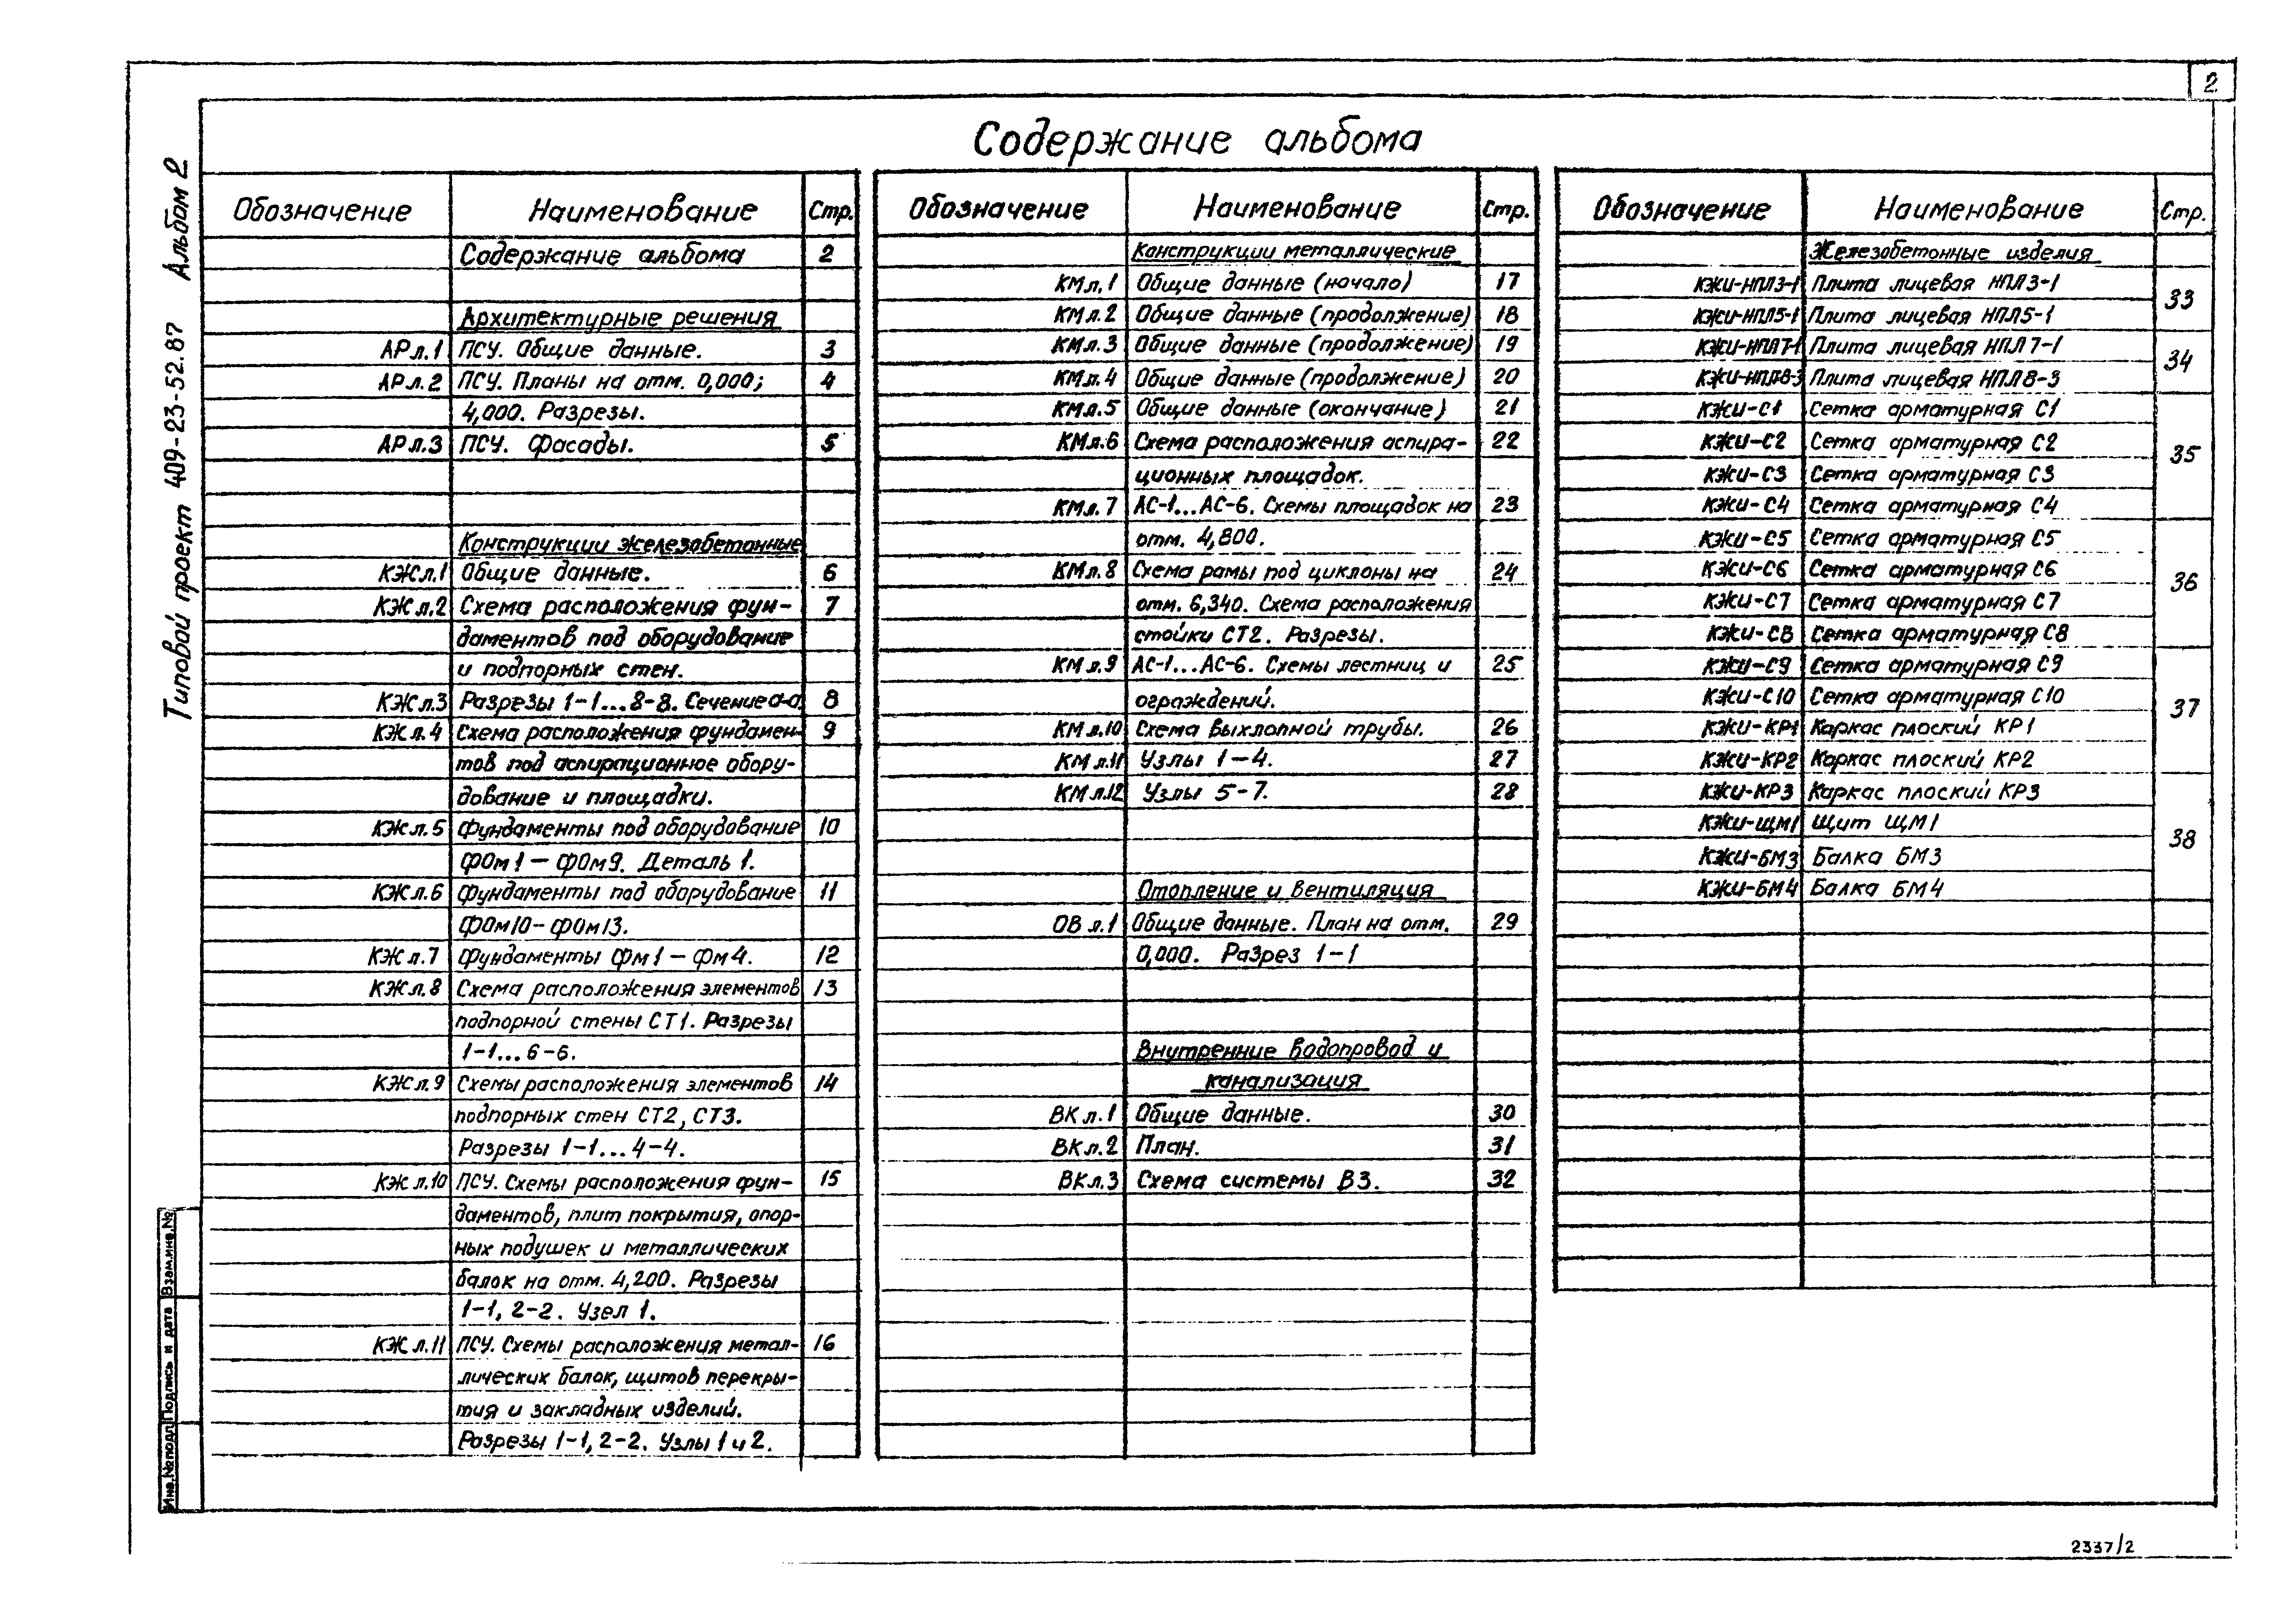 2
Содержание альбома
Типовой проект 409-23-52.87 Альбом 2
Обозначение Наименование Стр.
Содержание альбома 2
Архитектурные решения
АР л.1 ПСУ. Общие данные. 3
АР л.2 ПСУ. Планы на отм. 0,000; 4
4,000. Разрезы.
АР л.3 ПСУ. Фасады. 5
Конструкции железобетонные
КЖ л.1 Общие данные. 6
КЖ л.2 Схема расположения фун- 7
даментов под оборудование
и подпорных стен.
КЖ л.3 Разрезы 1-1...8-8. Сечение а-а. 8
КЖ л.4 Схема расположения фундамен- 9
тов под аспирационное обору-
дование и площадки.
КЖ л.5 Фундаменты под оборудование 10
ФОм1 — ФОм9. Деталь 1.
КЖ л.6 Фундаменты под оборудование 11
ФОм10-ФОм13.
КЖ л.7 Фундаменты Фм1 — Фм4. 12
КЖ л.8 Схема расположения элементов 13
подпорной стены СТ1. Разрезы
1-1...6-6.
КЖ л.9 Схемы расположения элементов 14
подпорных стен СТ2, СТ3.
Разрезы 1-1...4-4.
КЖ л.10 ПСУ. Схемы расположения фун- 15
даментов, плит покрытия, опор-
ных подушек и металлических
балок на отм. 4,200. Разрезы
1-1, 2-2. Узел 1.
КЖ л.11 ПСУ. Схемы расположения метал- 16
лических балок, щитов перекры-
тия и закладных изделий.
Разрезы 1-1, 2-2. Узлы 1 и 2.
Обозначение Наименование Стр.
Конструкции металлические
КМ л.1 Общие данные (начало) 17
КМ л.2 Общие данные (продолжение) 18
КМ л.3 Общие данные (продолжение) 19
КМ л.4 Общие данные (продолжение) 20
КМ л.5 Общие данные (окончание) 21
КМ л.6 Схема расположения аспира- 22
ционных площадок.
КМ л.7 АС-1...АС-6. Схемы площадок на 23
отм. 4,800.
КМ л.8 Схема рамы под циклоны на 24
отм. 6,340. Схема расположения
стойки СТ2. Разрезы.
КМ л.9 АС-1...АС-6. Схемы лестниц и 25
ограждений.
КМ л.10 Схема выхлопной трубы. 26
КМ л.11 Узлы 1-4. 27
КМ л.12 Узлы 5-7. 28
Отопление и вентиляция
ОВ л.1 Общие данные. План на отм. 29
0,000. Разрез 1-1
Внутренние водопровод и
канализация
ВК л.1 Общие данные. 30
ВК л.2 План. 31
ВК л.3 Схема системы В3. 32
Обозначение Наименование Стр.
Железобетонные изделия
КЖИ-НПЛ3-1 Плита лицевая НПЛ3-1
33
КЖИ-НПЛ5-1 Плита лицевая НПЛ5-1
КЖИ-НПЛ7-1 Плита лицевая НПЛ7-1
34
КЖИ-НПЛ8-3 Плита лицевая НПЛ8-3
КЖИ-С1 Сетка арматурная С1
КЖИ-С2 Сетка арматурная С2
35
КЖИ-С3 Сетка арматурная С3
КЖИ-С4 Сетка арматурная С4
КЖИ-С5 Сетка арматурная С5
КЖИ-С6 Сетка арматурная С6
36
КЖИ-С7 Сетка арматурная С7
КЖИ-С8 Сетка арматурная С8
КЖИ-С9 Сетка арматурная С9
КЖИ-С10 Сетка арматурная С10
37
КЖИ-КР1 Каркас плоский КР1
КЖИ-КР2 Каркас плоский КР2
КЖИ-КР3 Каркас плоский КР3
КЖИ-ЩМ1 Щит ЩМ1
38
КЖИ-БМ3 Балка БМ3
КЖИ-БМ4 Балка БМ4
Инв.№подл. Подпись и дата Взам.инв.№
2337/2